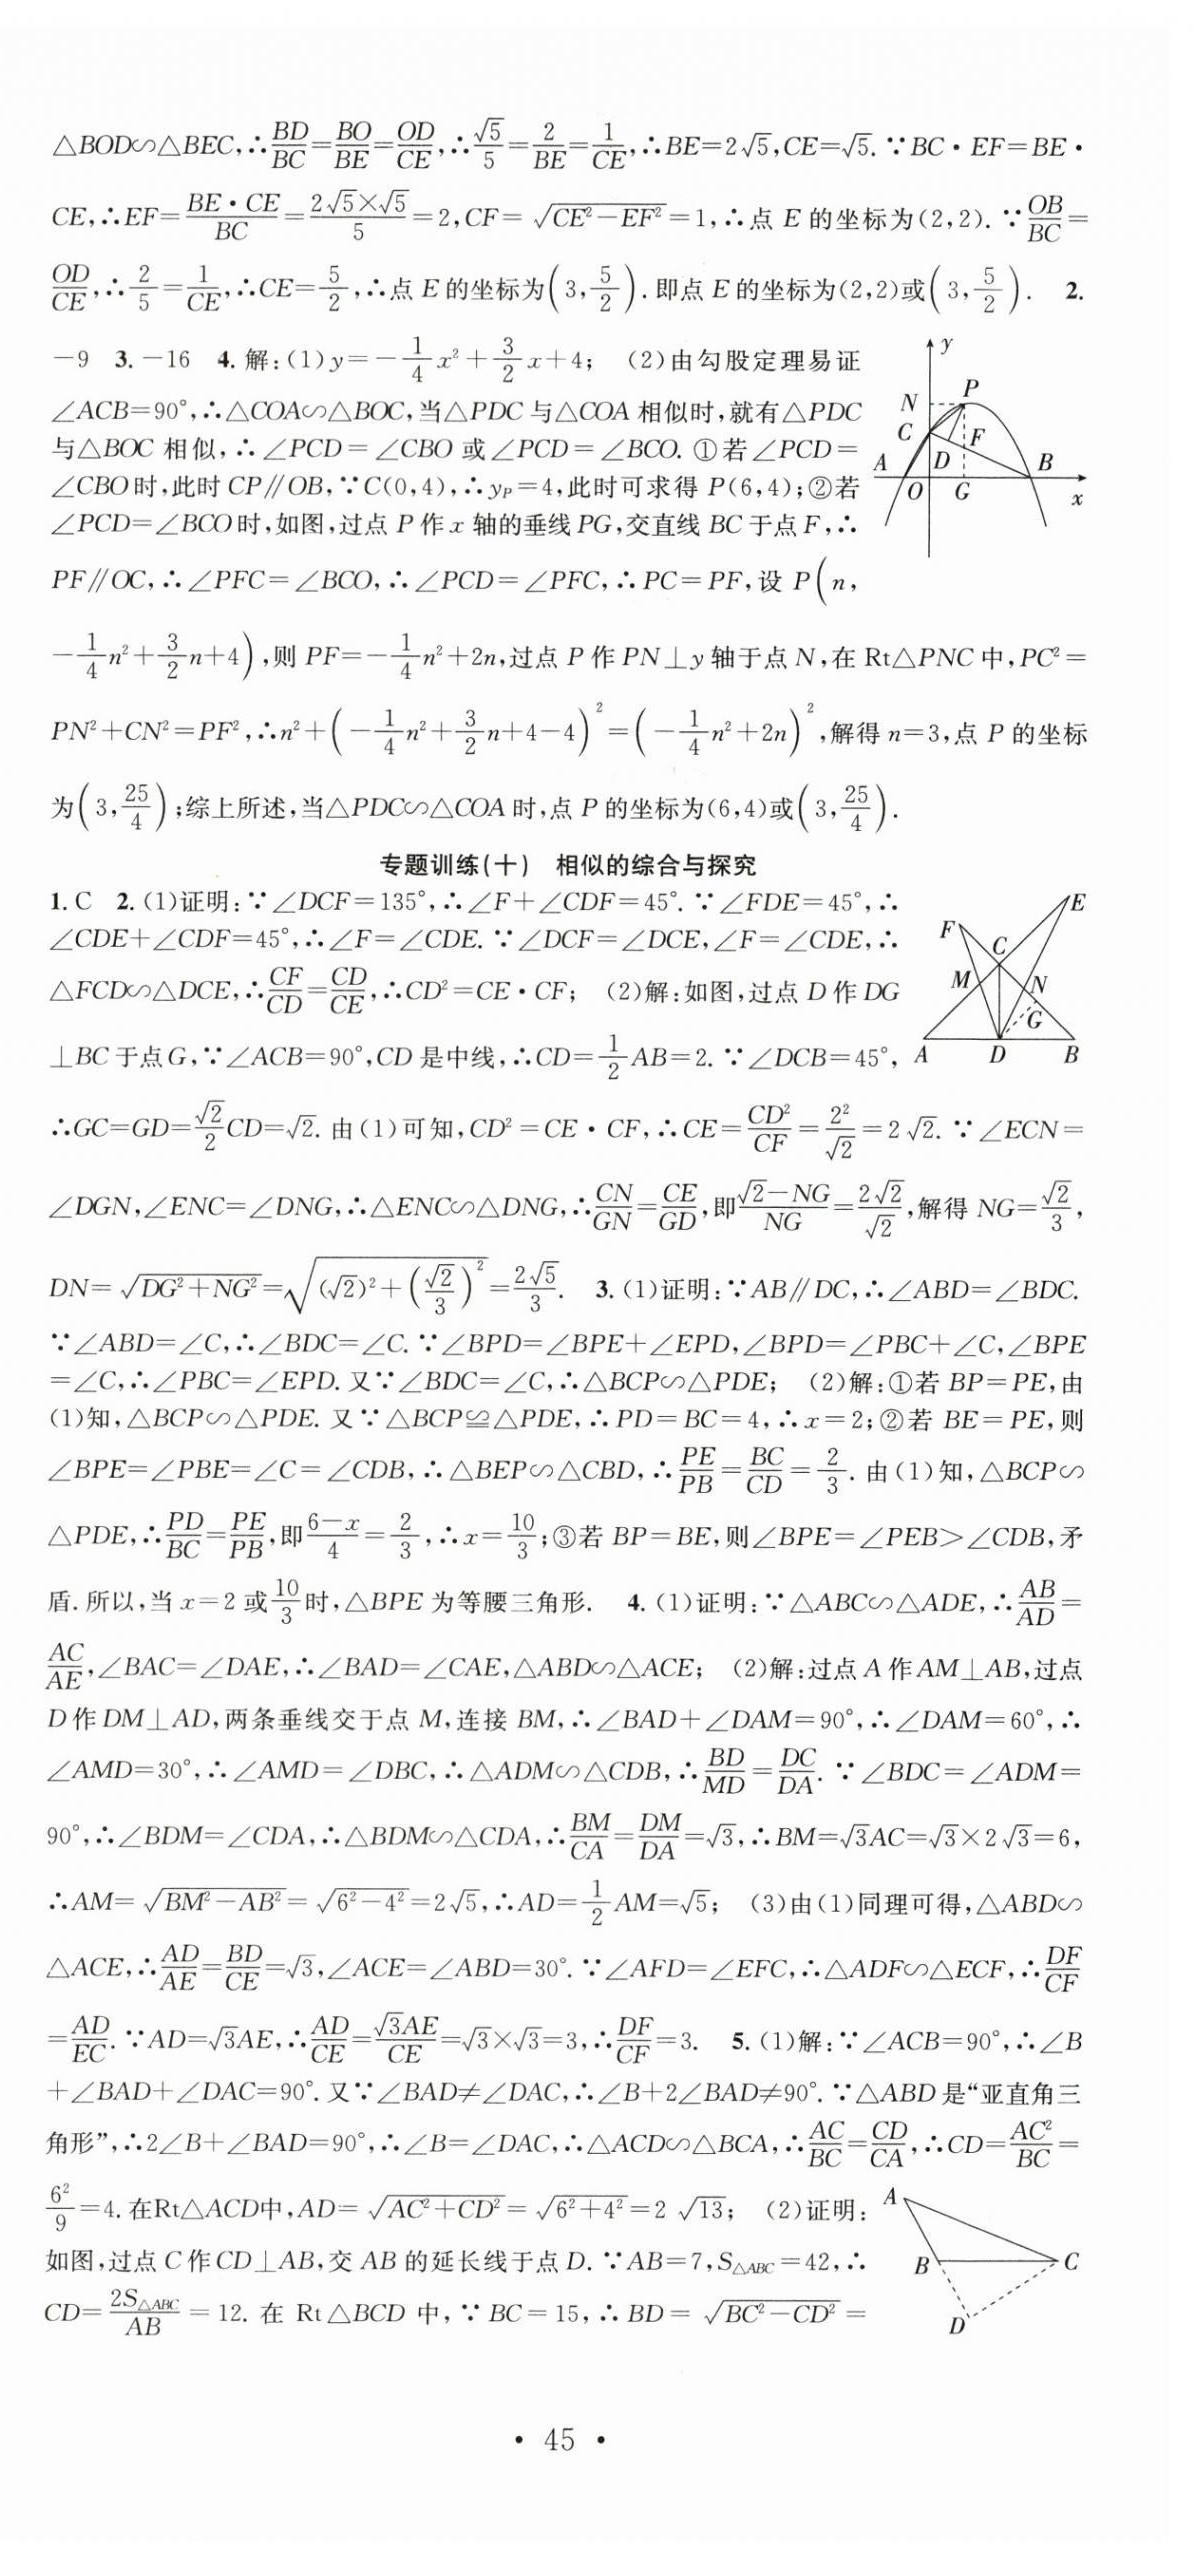 △BOD∽△BEC,∴BD/BC=BO/BE=OD/CE,∴√5/5=2/BE=1/CE,∴BE=2√5,CE=√5.∵BC·EF=BE·
CE,∴EF=BE·CE/BC=2√5×√5/5=2,CF=√(CE²-EF²)=1,∴点 E 的坐标为(2,2).∵OB/BC=
OD/CE,∴2/5=1/CE,∴CE=5/2,∴点 E 的坐标为(3,5/2).即点 E 的坐标为(2,2)或(3,5/2). 2.
-9 3.-16 4.解:(1)y=-1/4x²+3/2x+4; (2)由勾股定理易证
∠ACB=90°,∴△COA∽△BOC,当△PDC与△COA 相似时,就有△PDC
与△BOC 相似,∴∠PCD=∠CBO 或∠PCD=∠BCO.①若∠PCD=
∠CBO时,此时 CP∥OB,∵C(0,4),∴yP=4,此时可求得 P(6,4);②若
∠PCD=∠BCO时,如图,过点 P 作 x 轴的垂线 PG,交直线 BC 于点 F,∴
PF∥OC,∴∠PFC=∠BCO,∴∠PCD=∠PFC,∴PC=PF,设 P(n,
-1/4n²+3/2n+4),则 PF=-1/4n²+2n,过点 P 作 PN⊥y 轴于点 N,在 Rt△PNC 中,PC²=
PN²+CN²=PF²,∴n²+(-1/4n²+3/2n+4-4)²=(-1/4n²+2n)²,解得 n=3,点 P 的坐标
为(3,25/4);综上所述,当△PDC∽△COA 时,点 P 的坐标为(6,4)或(3,25/4).
y
N
P
C
F
A
D
B
O
G
x
专题训练(十) 相似的综合与探究
1.C 2.(1)证明:∵∠DCF=135°,∴∠F+∠CDF=45°.∵∠FDE=45°,∴
∠CDE+∠CDF=45°,∴∠F=∠CDE.∵∠DCF=∠DCE,∠F=∠CDE,∴
△FCD∽△DCE,∴CF/CD=CD/CE,∴CD²=CE·CF; (2)解:如图,过点 D 作 DG
⊥BC 于点 G,∵∠ACB=90°,CD 是中线,∴CD=1/2AB=2.∵∠DCB=45°,
E
F
C
M
N
G
A
D
B
∴GC=GD=√2/2CD=√2.由(1)可知,CD²=CE·CF,∴CE=CD²/CF=2²/√2=2√2.∵∠ECN=
∠DGN,∠ENC=∠DNG,∴△ENC∽△DNG,∴CN/GN=CE/GD,即(√2-NG)/NG=2√2/√2,解得 NG=√2/3,
DN=√(DG²+NG²)=√((√2)²+(√2/3)²)=2√5/3. 3.(1)证明:∵AB∥DC,∴∠ABD=∠BDC.
∵∠ABD=∠C,∴∠BDC=∠C.∵∠BPD=∠BPE+∠EPD,∠BPD=∠PBC+∠C,∠BPE
=∠C,∴∠PBC=∠EPD.又∵∠BDC=∠C,∴△BCP∽△PDE; (2)解:①若 BP=PE,由
(1)知,△BCP∽△PDE.又∵△BCP≌△PDE,∴PD=BC=4,∴x=2;②若 BE=PE,则
∠BPE=∠PBE=∠C=∠CDB,∴△BEP∽△CBD,∴PE/PB=BC/CD=2/3.由(1)知,△BCP∽
△PDE,∴PD/BC=PE/PB,即(6-x)/4=2/3,∴x=10/3;③若 BP=BE,则∠BPE=∠PEB>∠CDB,矛
盾.所以,当 x=2 或10/3时,△BPE 为等腰三角形. 4.(1)证明:∵△ABC∽△ADE,∴AB/AD=
AC/AE,∠BAC=∠DAE,∴∠BAD=∠CAE,△ABD∽△ACE; (2)解:过点 A 作 AM⊥AB,过点
D 作 DM⊥AD,两条垂线交于点 M,连接 BM,∴∠BAD+∠DAM=90°,∴∠DAM=60°,∴
∠AMD=30°,∴∠AMD=∠DBC,∴△ADM∽△CDB,∴BD/MD=DC/DA.∵∠BDC=∠ADM=
90°,∴∠BDM=∠CDA,∴△BDM∽△CDA,∴BM/CA=DM/DA=√3,∴BM=√3AC=√3×2√3=6,
∴AM=√(BM²-AB²)=√(6²-4²)=2√5,∴AD=1/2AM=√5; (3)由(1)同理可得,△ABD∽
△ACE,∴AD/AE=BD/CE=√3,∠ACE=∠ABD=30°.∵∠AFD=∠EFC,∴△ADF∽△ECF,∴DF/CF
=AD/EC.∵AD=√3AE,∴AD/CE=√3AE/CE=√3×√3=3,∴DF/CF=3. 5.(1)解:∵∠ACB=90°,∴∠B
+∠BAD+∠DAC=90°.又∵∠BAD≠∠DAC,∴∠B+2∠BAD≠90°.∵△ABD 是“亚直角三
角形”,∴2∠B+∠BAD=90°,∴∠B=∠DAC,∴△ACD∽△BCA,∴AC/BC=CD/CA,∴CD=AC²/BC=
6²/9=4.在Rt△ACD中,AD=√(AC²+CD²)=√(6²+4²)=2√13; (2)证明:
如图,过点 C 作 CD⊥AB,交 AB 的延长线于点 D.∵AB=7,S△ABC=42,∴
CD=2S△ABC/AB=12.在 Rt△BCD 中,∵BC=15,∴BD=√(BC²-CD²)=
A
B
C
D
· 45 ·